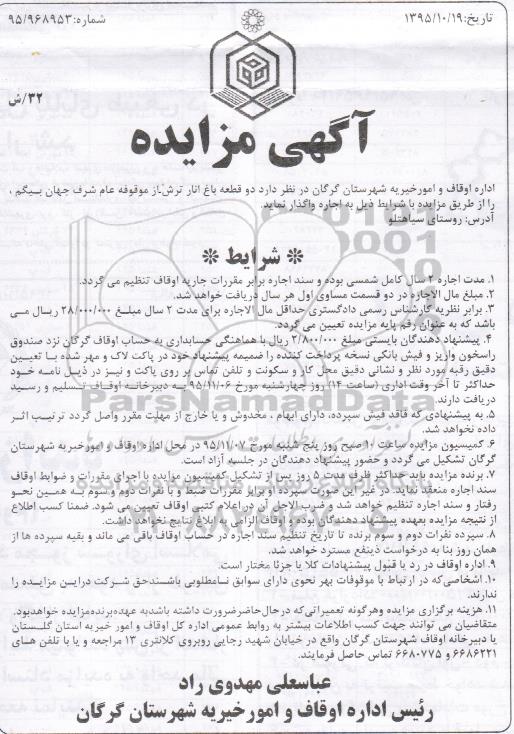 تاریخ: ۱۳۹۵/۱۰/۱۹
شماره: ۹۵/۹۶۸۹۵۳
۳۲/ش
آگهی مزایده
اداره اوقاف و امورخیریه شهرستان گرگان در نظر دارد دو قطعه باغ انار ترش از موقوفه عام شرف جهان بیگم ،
را از طریق مزایده با شرایط ذیل به اجاره واگذار نماید.
آدرس: روستای سیاهتلو
* شرایط *
۱. مدت اجاره ۲ سال کامل شمسی بوده و سند اجاره برابر مقررات جاریه اوقاف تنظیم می گردد.
۲. مبلغ مال الاجاره در دو قسمت مساوی اول هر سال دریافت خواهد شد.
۳. برابر نظریه کارشناس رسمی دادگستری حداقل مال الاجاره برای مدت ۲ سال مبلـغ ۲۸/۰۰۰/۰۰۰ ریـال مـی
باشد که به عنوان رقم پایه مزایده تعیین می گردد.
۴. پیشنهاد دهندگان بایستی مبلغ ۲/۸۰۰/۰۰۰ ریال با هماهنگی حسابداری به حساب اوقاف گرگان نزد صندوق
راسخون واریز و فیش بانکی نسخه پرداخت کننده را ضمیمه پیشنهاد خود در پاکت لاک و مهر شده بـا تعیـین
دقیق رقبه مورد نظر و نشانی دقیق محل کار و سکونت و تلفن تماس بر روی پاکت و نیـز در ذیـل نامـه خـود
حداکثر تا آخر وقت اداری (ساعت ۱۴) روز چهارشنبه مورخ ۹۵/۱۱/۰۶ بـه دبیرخانـه اوقـاف تـسلیم و رسـید
دریافت دارند.
۵. به پیشنهادی که فاقد فیش سپرده، دارای ابهام ، مخدوش و یا خارج از مهلت مقرر واصل گردد ترتیـب اثـر
داده نخواهد شد.
۶. کمیسیون مزایده ساعت ۱۰ صبح روز پنج شنبه مورخ ۹۵/۱۱/۰۷ در محل اداره اوقاف و امورخیر یه شهرستان
گرگان تشکیل می گردد و حضور پیشنهاد دهندگان در جلسه آزاد است.
۷. برنده مزایده باید حداکثر ظرف مدت ۵ روز پس از تشکیل کمیسیون مزایده با اجرای مقررات و ضوابط اوقاف
سند اجاره منعقد نماید. در غیر این صورت سپرده او برابر مقررات ضبط و با نفرات دوم و سوم به همین نحـو
رفتار و سند اجاره تنظیم خواهد شد و ضرب الاجل آن در اعلام کتبی اوقاف تعیین می شود. ضمنا کسب اطلاع
از نتیجه مزایده بعهده پیشنهاد دهندگان بوده و اوقاف الزامی به ابلاغ نتایج نخواهد داشت.
۸. سپرده نفرات دوم و سوم برنده تا تاریخ تنظیم سند اجاره در حساب اوقاف باقی می ماند و بقیه سپرده ها از
همان روز بنا به درخواست ذینفع مسترد خواهد شد.
۹. اداره اوقاف در رد یا قبول پیشنهادات کلا یا جزئا مختار است.
۱۰. اشخاصی که در ارتباط با موقوفات بهر نحوی دارای سوابق نـامطلوبی باشـندحق شـرکت درایـن مزایـده را
ندارند.
۱۱. هزینه برگزاری مزایده وهرگونه تعمیراتی که درحال حاضرضرورت داشته باشد به عهده برنده مزایده خواهد بود.
متقاضیان می توانند جهت کسب اطلاعات بیشتر به روابط عمومی اداره کل اوقاف و امور خیر یه استان گلـستان
یا دبیرخانه اوقاف شهرستان گرگان واقع در خیابان شهید رجایی روبروی کلانتری ۱۳ مراجعه و یا با تلفن های
۶۶۸۶۲۲۱ و ۶۶۸۰۷۷۵ تماس حاصل فرمایند.
عباسعلی مهدوی راد
رئیس اداره اوقاف و امورخیریه شهرستان گرگان
ParsNamadData